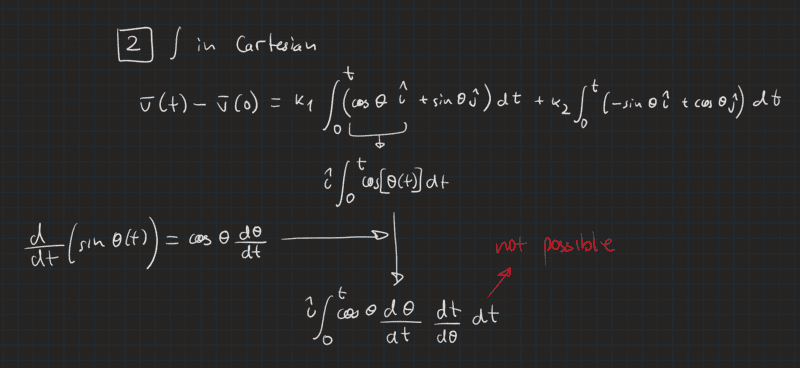 2 ∫ in Cartesian
v̄(t) − v̄(0) = k₁ ∫₀ᵗ (cos θ î + sin θ ĵ) dt + k₂ ∫₀ᵗ (−sin θ î + cos θ ĵ) dt
î ∫₀ᵗ cos[θ(t)] dt
d/dt (sin θ(t)) = cos θ dθ/dt
not possible
î ∫₀ᵗ cos θ dθ/dt dt/dθ dt